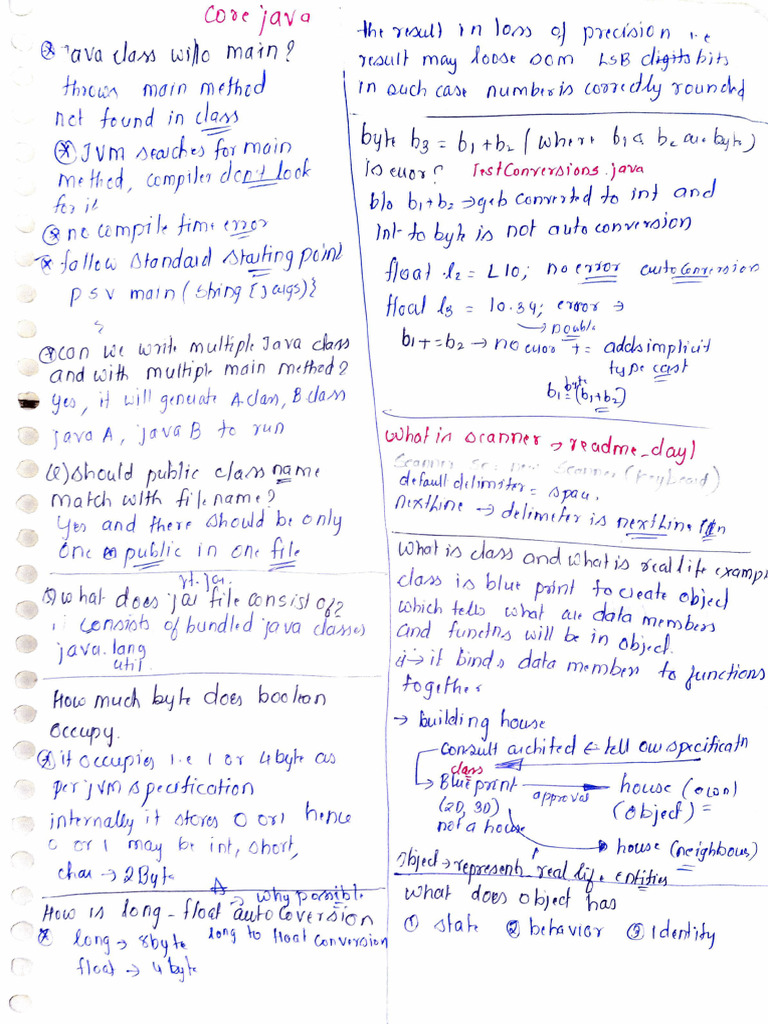 Core java
java class w/o main?
throws main method
not found in class
JVM searches for main
method, compiler don't look
for it
no compile time error
follow standard starting point
psv main(String []args){
}
can we write multiple Java class
and with multiple main method?
yes, it will generate A class, B class
java A, java B to run
(Q) should public class name
match with file name?
Yes and there should be only
one public in one file
rt.jar
what does jar file consist of?
consists of bundled java classes
java.lang
util.
How much byte does boolean
occupy.
it occupies i.e 1 or 4 byte as
per jvm specification
internally it stores 0 or 1 hence
0 or 1 may be int, short,
char → 2 Byte
→ why possible
How is long - float autocoversion
long → 8byte long to float conversion
float → 4 byte
the result in loss of precision i.e
result may loose som LSB digits bits
in such case number is correctly rounded
byte b3 = b1+b2 (where b1 & b2 are byte)
is error? TestConversions.java
b/o b1+b2 → geb converted to int and
int to byte is not auto conversion
float l2 = L10; no error auto conversion
float l3 = 10.34; error →
→ double
b1+=b2 → no error += adds implicit
type cast
byte
b1=(b1+b2)
what is scanner → readme_day1
Scanner sc= new Scanner(keyboard)
default delimiter = space.
nextline → delimeter is nextline \n
What is class and what is real life exampl
class is blue print to create object
which tells what are data members
and functns will be in object.
it binds data member to functions
together
→ Building house
consult architect ← tell our specificatn
class
→ Blue print approval house (own)
(2D, 3D) (object) =
not a house
house (neighbous)
object → represent real life entities
what does object has
① state ② behavior ③ Identity